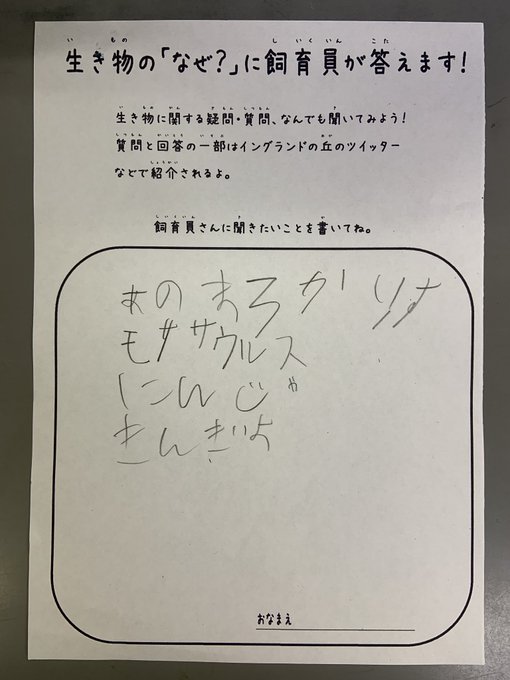 生き物の「なぜ?」に飼育員が答えます!
生き物に関する疑問・質問、なんでも聞いてみよう!
質問と回答の一部はイングランドの丘のツイッター
などで紹介されるよ。
飼育員さんに聞きたいことを書いてね。
あのまろかりす
モササウルス
にんじゃ
きんぎよ
おなまえ